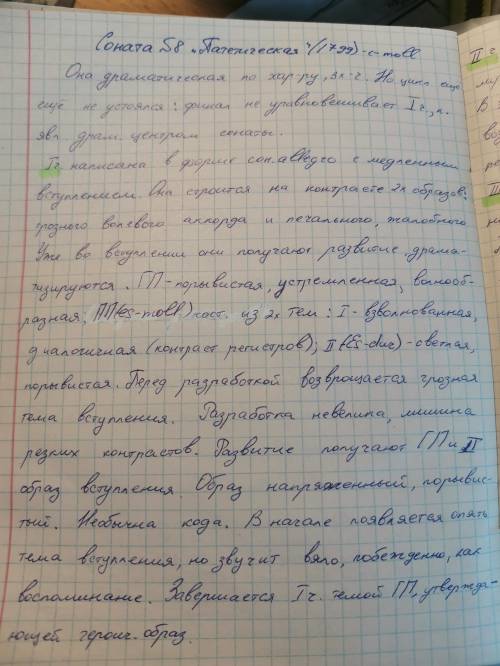 Соната №8 „Патетическая“ (1799) - c-moll
Она драматическая по хар-ру, 3х-ч. Но цикл ещё
ещё не устоялся: финал не уравновешивает I ч.,
явл. драм. центром сонаты.
I ч. написана в форме сон. allegro с медленным
вступлением. Она строится на контрасте 2х образов:
грозного волевого аккорда и печального, жалобного
Уже во вступлении они получают развитие, драма-
тизируются. ГП - порывистая, устремлённая, волнооб-
разная. ПП (es-moll) сост. из 2х тем: I - взволнованная,
диалогичная (контраст регистров); II (Es-dur) - светлая,
порывистая. Перед разработкой возвращается грозная
тема вступления. Разработка невелика, лишина
резких контрастов. Развитие получают ГП и II
образ вступления. Образ напряженный, порывис-
тый. Необычна кода. В начале появляется опять
тема вступления, но звучит вяло, побежденно, как
воспоминание. Завершается I ч. темой ГП, утвержда-
ющей героич. образ.
II ч
В
III